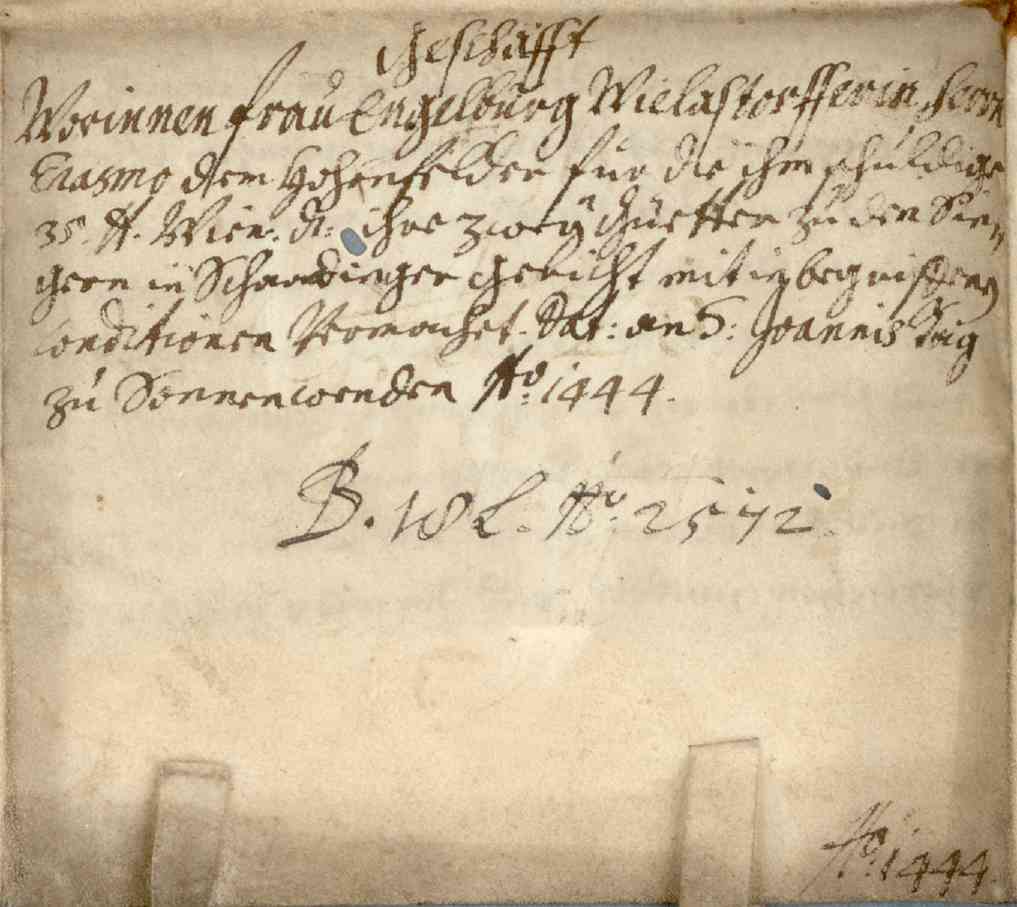 Geschäfft
Worinnen frau Engelburg Wielastorfferin, herrn
Erasmo dem Hohenfelder für die ihm schuldige
35 ℔. Wien. d: ihre zweÿ Güetter zu den Sin-
gern in Schardinger Gericht mit inbegriffenen
Conditionen Vermachet. Dat: an S: Joannis Tag
zu Sonnenwenden Ao: 1444.
B. No: 2572.
Ao: 1444.